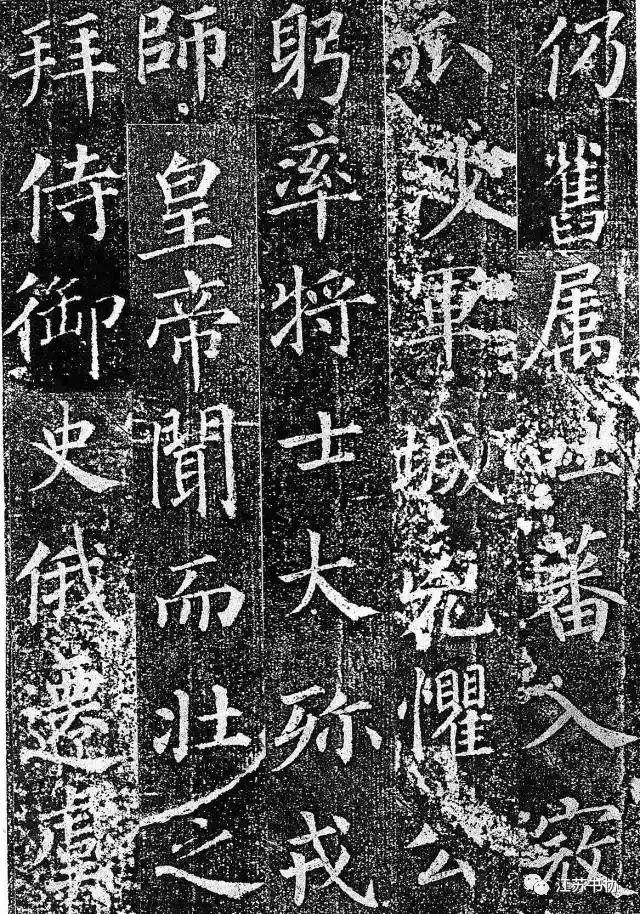 仍舊属吐蕃入寇
瓜沙軍城兇懼公
躬率将士大殄戎
師皇帝聞而壮之
拜侍御史俄遷虞
江苏书协